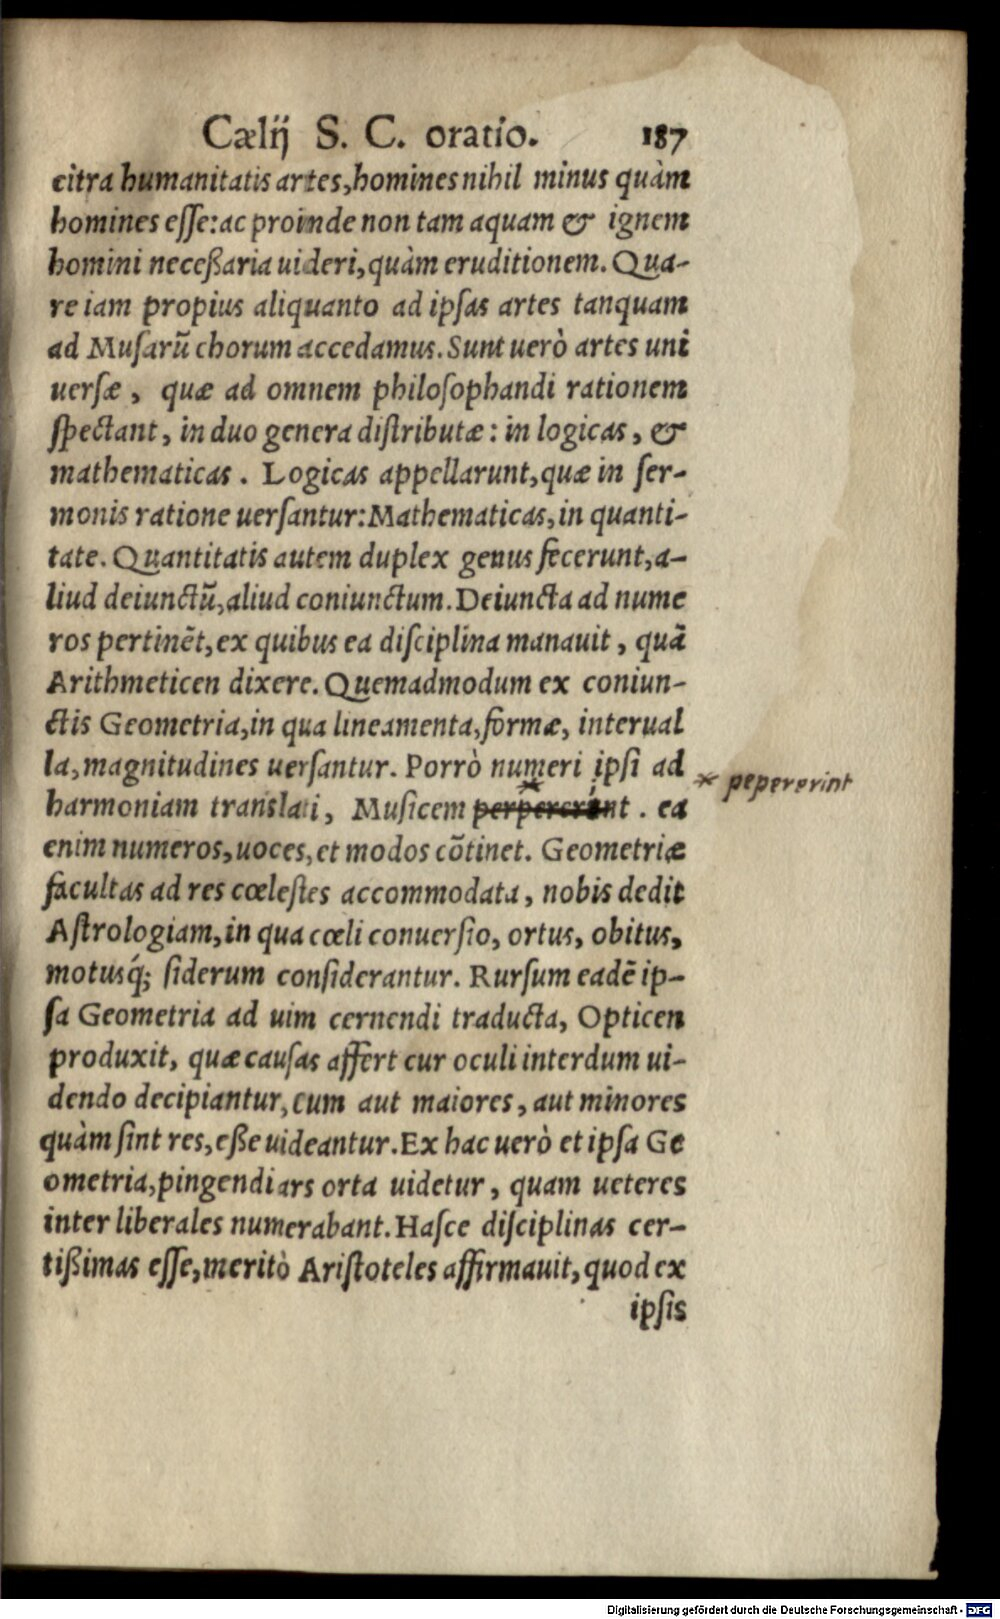 Cælij S. C. oratio. 187
citra humanitatis artes, homines nihil minus quàm
homines eſſe: ac proinde non tam aquam & ignem
homini neceßaria uideri, quàm eruditionem. Qua-
re iam propius aliquanto ad ipſas artes tanquam
ad Muſarũ chorum accedamus. Sunt uerò artes uni
uerſæ, quæ ad omnem philoſophandi rationem
ſpectant, in duo genera diſtributæ: in logicas, &
mathematicas. Logicas appellarunt, quæ in ſer-
monis ratione uerſantur: Mathematicas, in quanti-
tate. Quantitatis autem duplex genus fecerunt, a-
liud deiunctũ, aliud coniunctum. Deiuncta ad nume
ros pertinẽt, ex quibus ea diſciplina manauit, quã
Arithmeticen dixere. Quemadmodum ex coniun-
ctis Geometria, in qua lineamenta, formæ, interual
la, magnitudines uerſantur. Porrò numeri ipſi ad
* pepererint
harmoniam translati, Muſicem perpererunt. ea
enim numeros, uoces, et modos cõtinet. Geometriæ
facultas ad res cœleſtes accommodata, nobis dedit
Aſtrologiam, in qua cœli conuerſio, ortus, obitus,
motusq́; ſiderum conſiderantur. Rurſum eadẽ ip-
ſa Geometria ad uim cernendi traducta, Opticen
produxit, quæ cauſas affert cur oculi interdum ui-
dendo decipiantur, cum aut maiores, aut minores
quàm ſint res, eße uideantur. Ex hac uerò et ipſa Ge
ometria, pingendi ars orta uidetur, quam ueteres
inter liberales numerabant. Haſce diſciplinas cer-
tißimas eſſe, meritò Ariſtoteles affirmauit, quod ex
ipſis
Digitalisierung gefördert durch die Deutsche Forschungsgemeinschaft - DFG